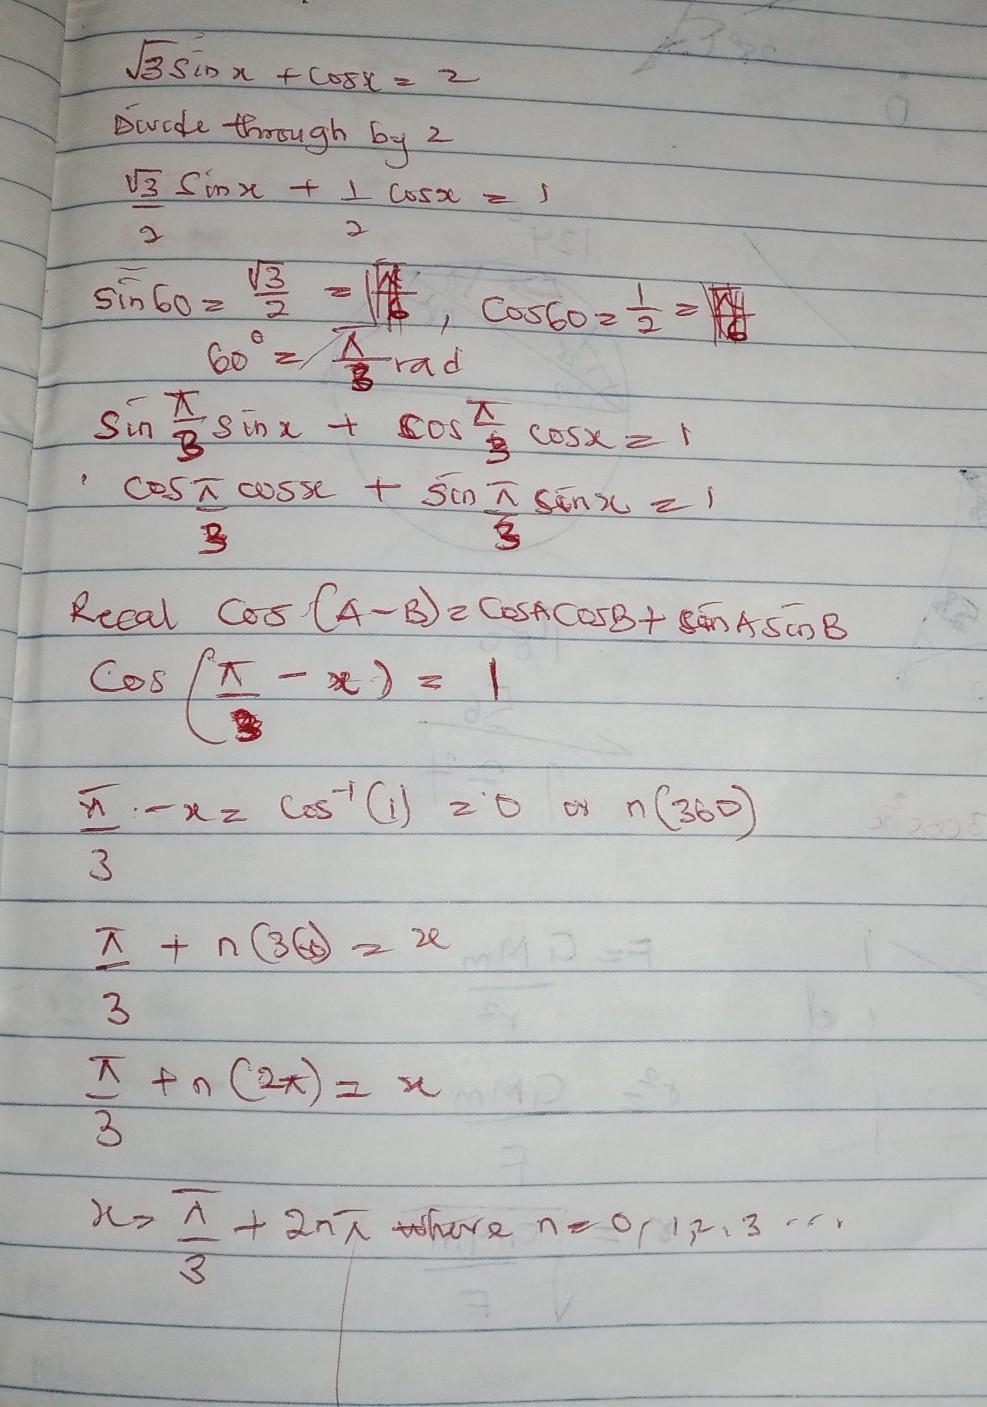 √3 sin x + cos x = 2
Divide through by 2
√3/2 sin x + 1/2 cos x = 1
sin 60 = √3/2 = , cos 60 = 1/2 =
60° = π/3 rad
sin π/3 sin x + cos π/3 cos x = 1
cos π/3 cos x + sin π/3 sin x = 1
Recal cos (A - B) = cosAcosB + sinAsinB
cos (π/3 - x) = 1
π/3 - x = cos⁻¹(1) = 0 or n(360)
π/3 + n(360) = x
π/3 + n(2π) = x
x = π/3 + 2nπ where n = 0, 1, 2, 3 ...